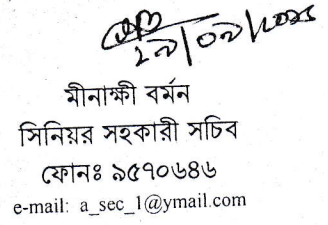 ২৯/০৯/২০২১
মীনাক্ষী বর্মন
সিনিয়র সহকারী সচিব
ফোনঃ ৯৫৭০৬৪৬
e-mail: a_sec_1@ymail.com